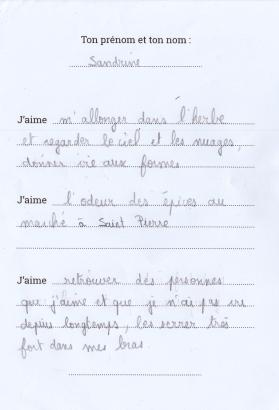 Ton prénom et ton nom :
Sandrine
J'aime m'allonger dans l'herbe
et regarder le ciel et les nuages,
donner vie aux formes
J'aime l'odeur des épices au
marché à Saint Pierre
J'aime retrouver des personnes
que j'aime et que je n'ai pas vu
depuis longtemps, les serrer très
fort dans mes bras.